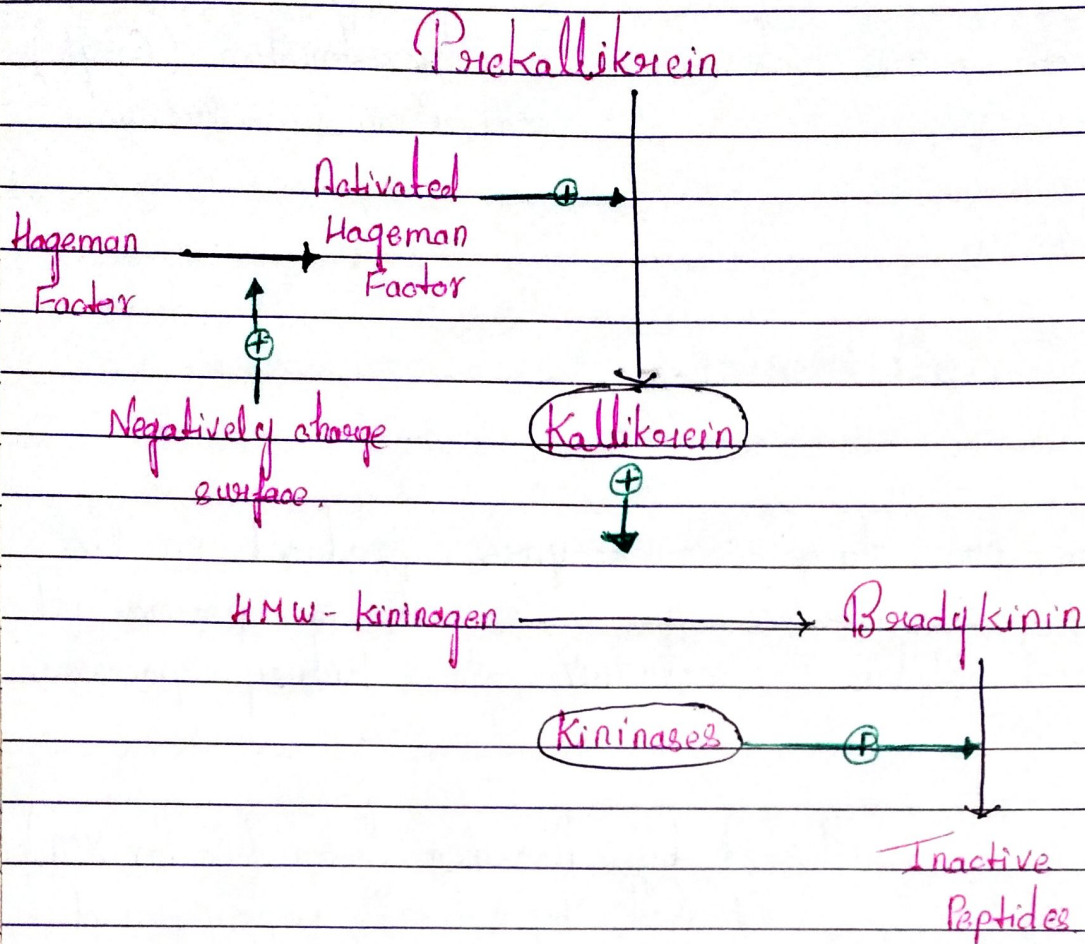 Prekallikrein
Activated
Hageman
Factor
+
Hageman
Factor
+
Negatively charge
surface.
Kallikrein
+
HMW - kininogen
Bradykinin
Kininases
+
Inactive
Peptides